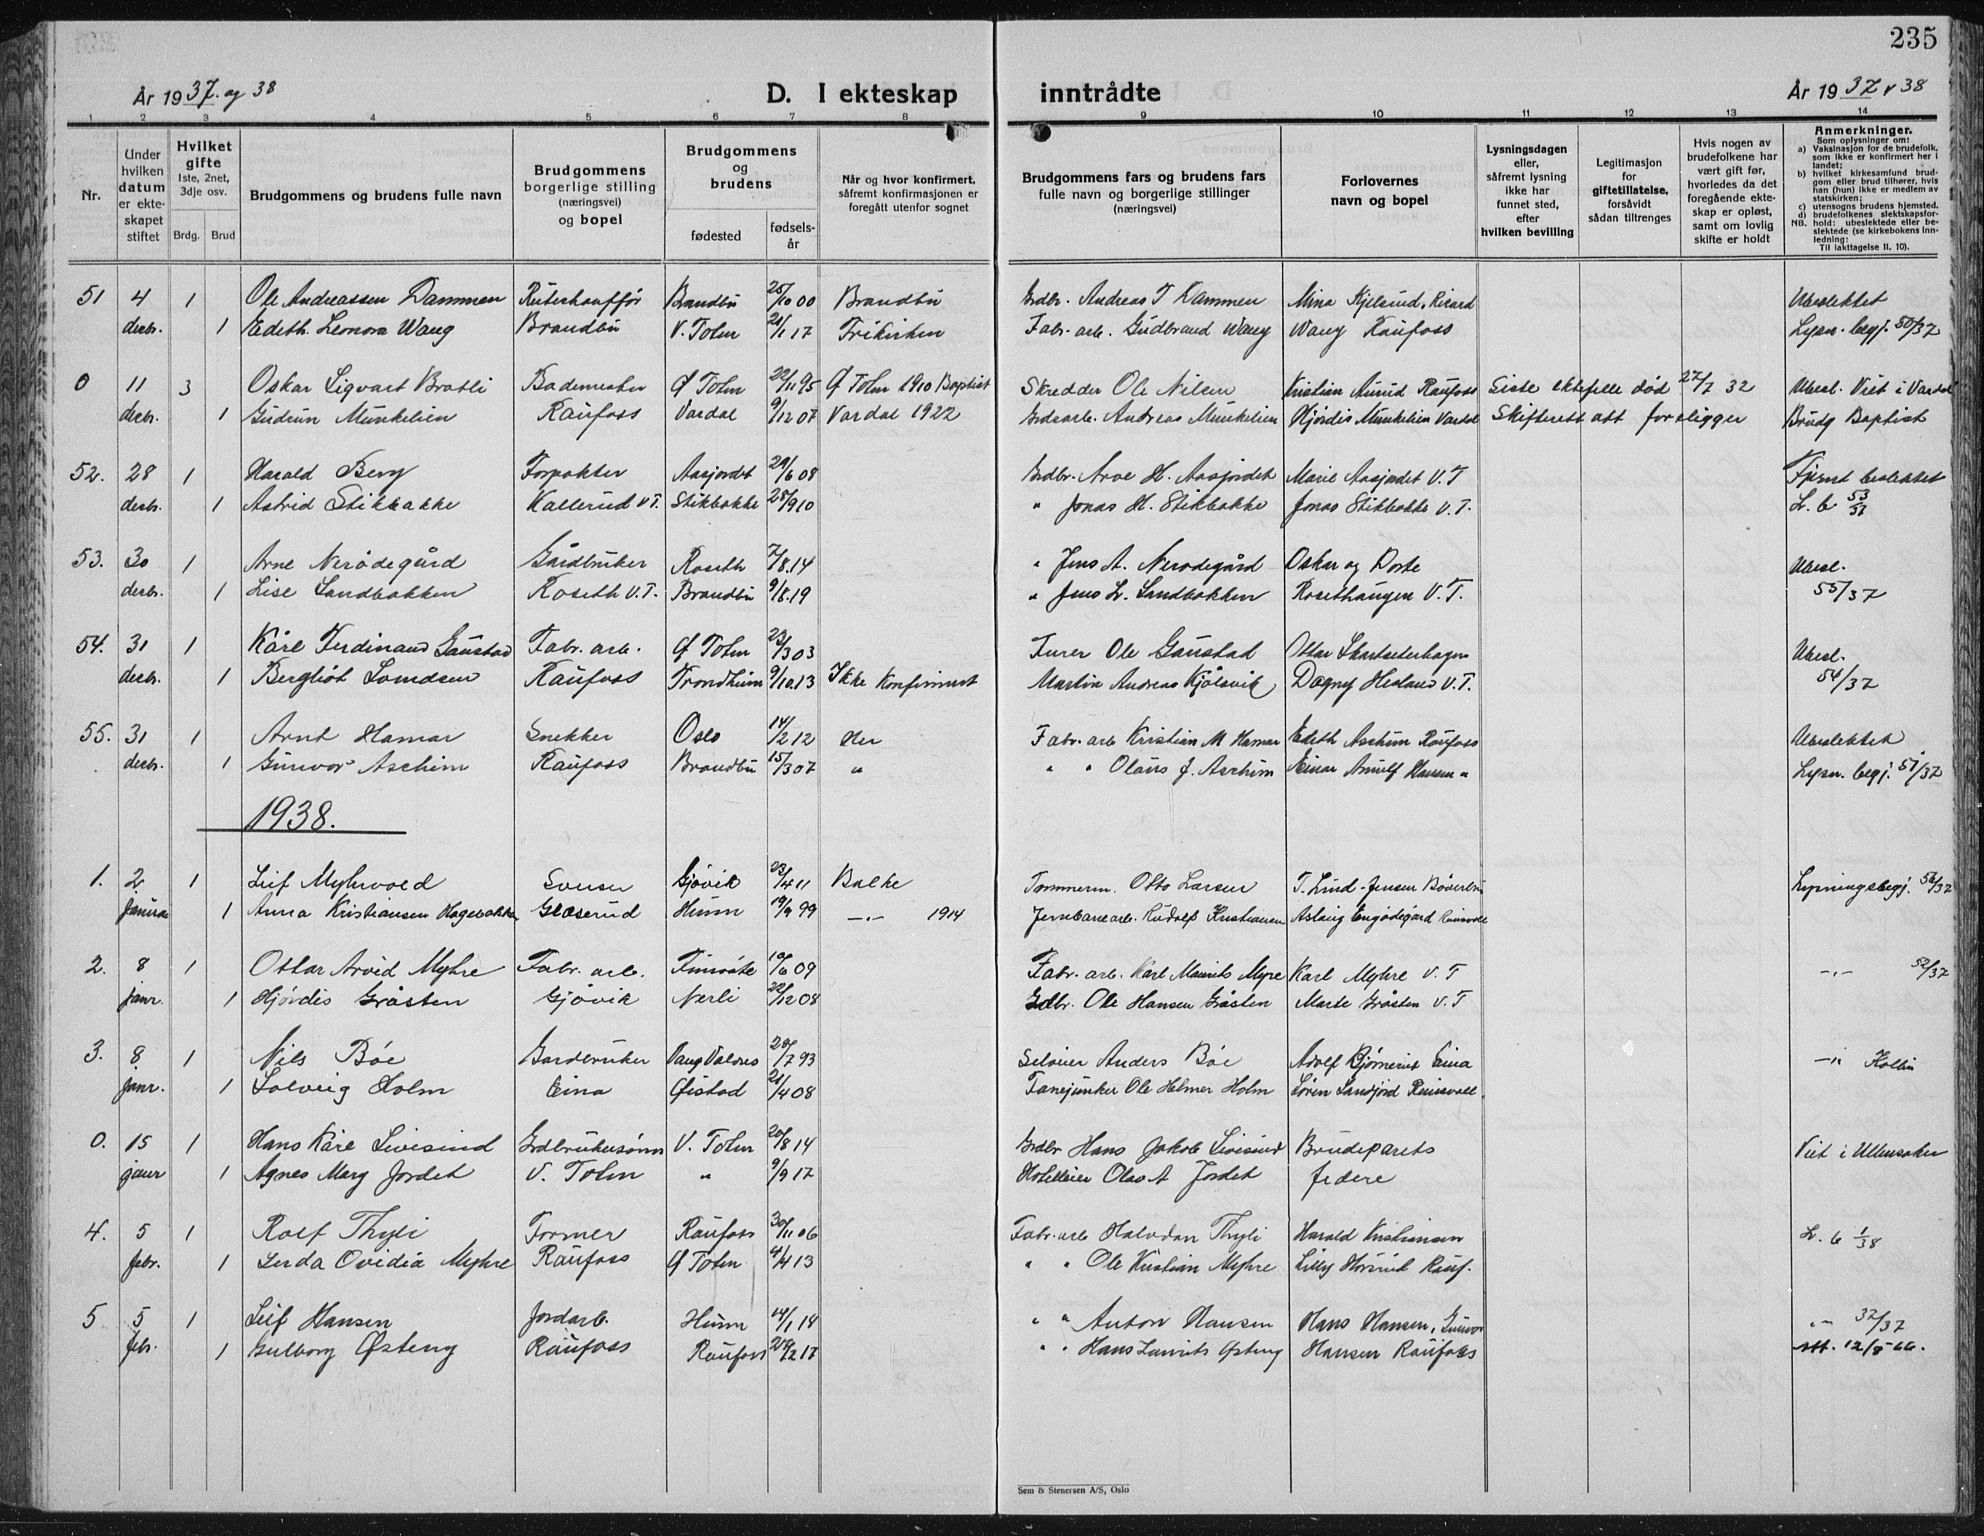 235
År 1937. og 38
D. I ekteskap inntrådte
År 1937 & 38
1 2 3 4 5 6 7 8 9 10 11 12 13 14
Nr.
Under hvilken datum er ekteskapet stiftet
Hvilket gifte
1ste, 2net, 3dje osv.
Brdg. Brud
Brudgommens og brudens fulle navn
Brudgommens borgerlige stilling (næringsvei) og bopel
Brudgommens og brudens
fødested
fødselsår
Når og hvor konfirmert, såfremt konfirmasjonen er foregått utenfor sognet
Brudgommens fars og brudens fars fulle navn og borgerlige stillinger (næringsvei)
Forlovernes navn og bopel
Lysningsdagen eller, såfremt lysning ikke har funnet sted, efter hvilken bevilling
Legitimasjon for giftetillatelse, forsåvidt sådan tiltrenges
Hvis nogen av brudefolkene har vært gift før, hvorledes da det foregående ekteskap er opløst, samt om lovlig skifte er holdt
Anmerkninger.
Som oplysninger om:
a) Vaksinasjon for de brudefolk, som ikke er konfirmert her i landet;
b) hvilket kirkesamfund brudgom eller brud tilhører, hvis han (hun) ikke er medlem av statskirken;
c) utensogns brudens hjemsted.
d) brudefolkenes slektskapsforhold: ubeslektede eller beslektede (se kirkebokens innledning:
NB. Til iakttagelse II. 10).
51 4 1 Ole Andreassen Dammen Rutechauffør Brandbu 25/10 00 Brandbu Grdbr. Andreas T Dammen Mina Kjelsrud, Ubeslektet
decbr. 1 Edith Leonora Wang Brandbu V. Toten 21/1 17 Frikirken Fabr. arb. Gudbrand Wang Wang Raufoss Lysn. begj. 50/37
0 11 3 Oskar Sigvart Bratli Bademester Ø Toten 22/11 95 Ø Toten 1910 Baptist Skredder Ole Nilsen Kristian Raufoss Siste ektefelle død 27/7 32 Ubesl. Viet i Vardal
decbr. 1 Gudrun Munkelien Raufoss Vardal 9/12 07 Vardal 1922 Grdsarb. Andreas Munkelien Hjørdis Munkelien Vardal Skifterett att foreligger Brudg Baptist
52. 28 1 Harald Berg Forpakter Aasjordet 29/6 08 Grdbr. Arve H. Aasjordet Marie Aasjordet V. T Fjernt beslektet
decbr. 1 Astrid Stikbakke Kallerud V.T. Stikbakke 25/9 10 " Jonas H. Stikbakke Jonas Stikbakke V. T. L. b 53
53. 30 1 Arne Nerødegård Gårdbruker Roseth 7/8.14 " Jens A. Nerødegård Oskar og Dorte Ubesl.
decbr. 1 Lise Sandbakken Roseth V.T. Brandbu 9/8.19 " Jens L. Sandbakken Rosethaugen V. T. 55/37
54. 31 1 Kåre Ferdinand Gaustad Fabr. arb. Ø Toten 23/3 03 Furer Ole Gaustad Ottar Skartseterhagen Ubesl.
decbr. 1 Bergliot Raufoss Trondheim 9/10.13 Ikke konfirmert Martin Andreas Kjølsvik Dagny Hesland V.T. 54/37
55. 31 1 Arnt Hamar Snekker Oslo 14/2 12 Her Fabr. arb Kristian M Hamar Edith Aschim Raufoss Ubeslektet
decbr. 1 Gunvor Aschim Raufoss Brandbu 15/3 07 " " " Olaus J. Aschim Einar Arnulf Hansen " Lysn. begj. 51/37
1938.
1. 2 1 Leif Myhrvold Gjøvik 23/4 11 Balke Tømmerm. Otto Larsen T. Lund-Jensen Bøverbru Lysningsbegj. 56/37
januar 1 Anna Kristiansen Hagebakken Glæserud Hunn 19/9 99 —"— 1914 Jernbanearb. Rudolf Kristiansen Aslaug Engødegård Reinsvoll
2. 8 1 Ottar Arvid Myhre Fabr. arb. 10/6 09 Fabr. arb. Karl Maurits Myre Karl Myhre V. T —"— 52/37
janr. 1 Hjørdis Gråsten Gjøvik Nerli 22/12 08 Gdbr. Ole Hansen Gråsten Marte Gråsten V. T
3. 8 1 Nils Bøe Gardbruker Vang Valdres 28/7 93 Seloier Anders Bøe Adolf Bjørnerud Eina —"— Kolbu
janr. 1 Solveig Holm Eina Øistad 21/4 08 Fanejunker Ole Helmer Holm Søren Sandjord Reinsvoll.
0. 15 1 Hans Kåre Sivesind Grdbrukersønn V. Toten 20/8 14 Grdbr Hans Jakob Sivesind Brudeparets Viet i Ullensaker
janr 1 Agnes Mary Jordet V. Toten " 9/9 17 Hotelleier Olav A Jordet fedre
4. 5 1 Rolf Thyli Former Raufoss 30/11 06 Fabr. arb Halvdan Thyli Harald Kristiansen L. b 1/38
febr. 1 Gerda Ovidia Myhre Raufoss Ø Toten 4/4 13 " " Ole Kristian Myhre Lilly Rauf.
5 5 1 Leif Hansen Jordarb. Hunn 14/1 14 " " Anton Hansen Hans Hansen, —"— 37/37
febr. 1 Gulborg Østeng Raufoss Raufoss 28/2 17 " " Hans Laurits Østeng Hansen Raufoss att. 12/8-66.
Sem & Stenersen A/S, Oslo